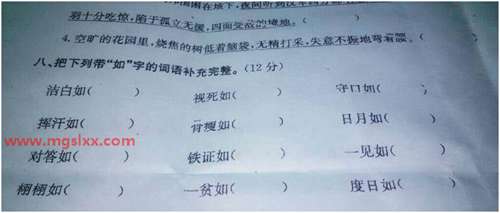 到十分吃惊,陷于孤立无援,四面受敌的境地。(
4.空旷的花园里,烧焦的树低着脑袋,无精打采,失意不振地弯着腰。(
八、把下列带“如”字的词语补充完整。(12分)
洁白如( ) 视死如( ) 守口如( )
挥汗如( ) 骨瘦如( ) 日月如( )
www.mgslxx.com
对答如( ) 铁证如( ) 一见如( )
栩栩如( ) 一贫如( ) 度日如( )